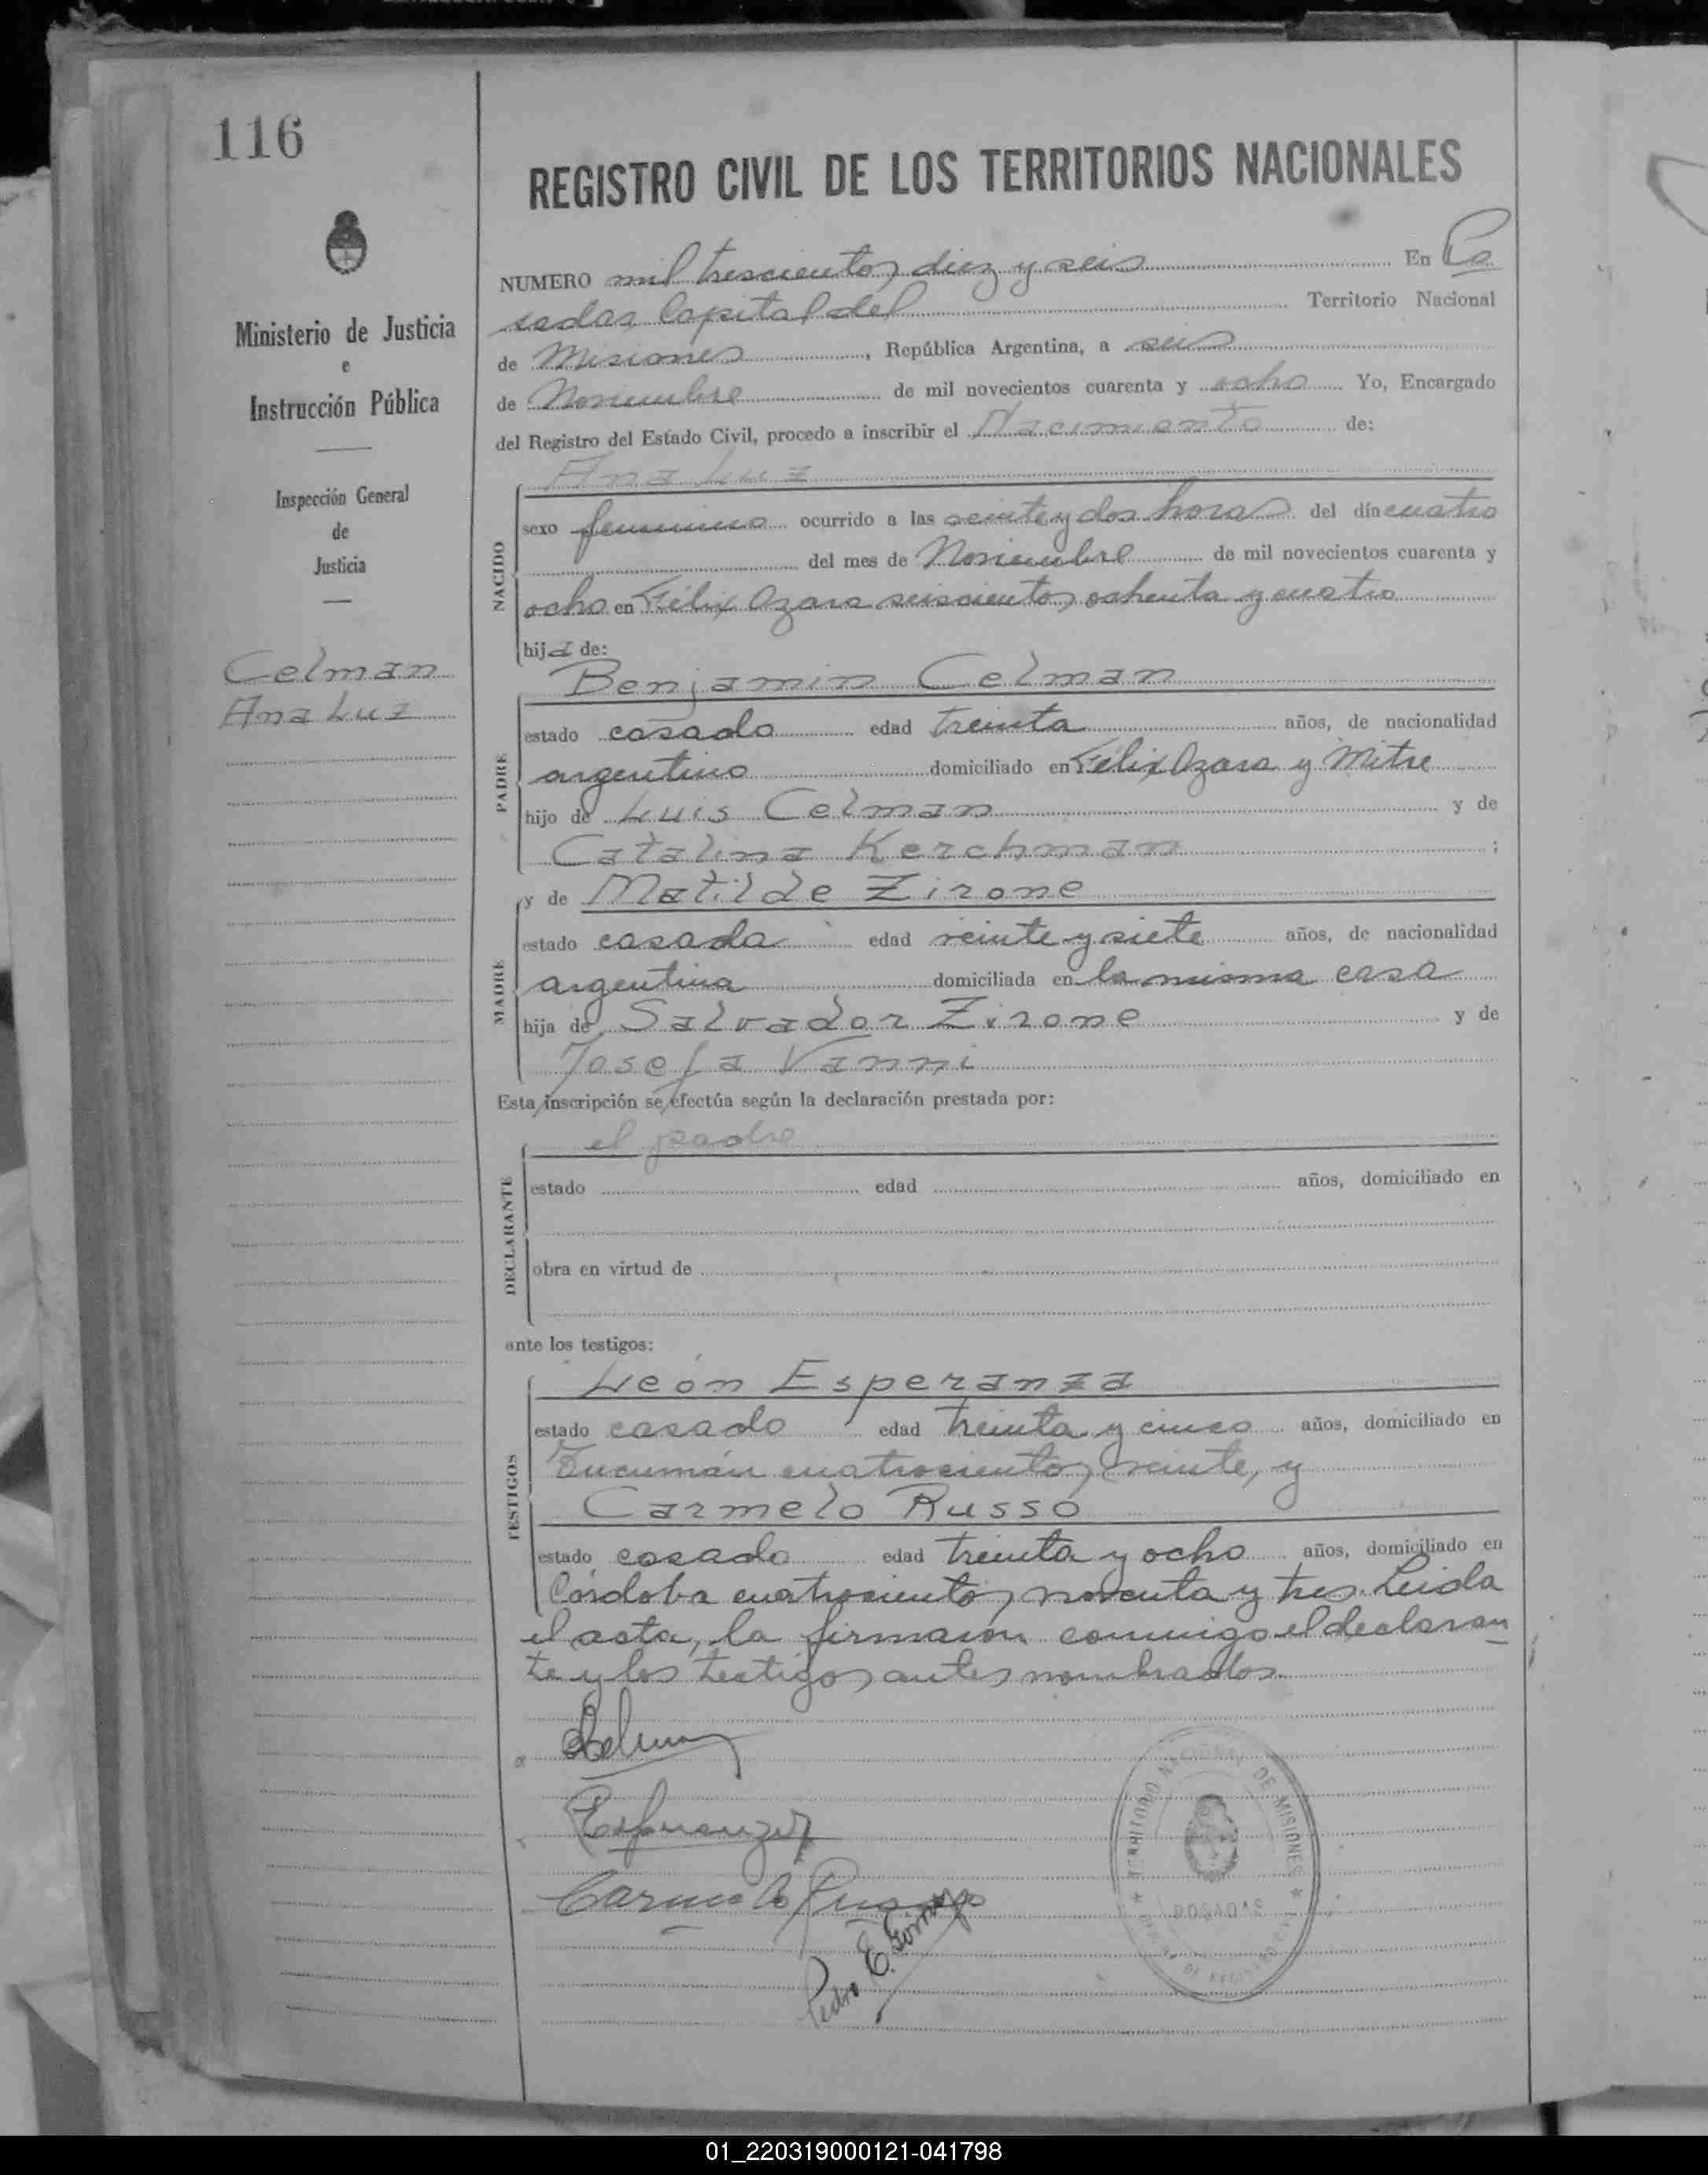 116
REGISTRO CIVIL DE LOS TERRITORIOS NACIONALES
Ministerio de Justicia
e
Instrucción Pública
Inspección General
de
Justicia
Celman
Ana Luz
NUMERO mil trescientos diez y seis En Po
sadas Capital del Territorio Nacional
de Misiones, República Argentina, a seis
de Noviembre de mil novecientos cuarenta y ocho Yo, Encargado
del Registro del Estado Civil, procedo a inscribir el Nacimiento de:
Ana Luz
NACIDO
sexo femenino ocurrido a las veinte y dos horas del día cuatro
del mes de Noviembre de mil novecientos cuarenta y
ocho en Félix Azara seiscientos ochenta y cuatro
hija de:
Benjamin Celman
PADRE
estado casado edad treinta años, de nacionalidad
argentino domiciliado en Félix Azara y Mitre
hijo de Luis Celman y de
Catalina Kerchman;
y de Matilde Zirone
MADRE
estado casada edad veinte y siete años, de nacionalidad
argentina domiciliada en la misma casa
hija de Salvador Zirone y de
Josefa Vanni
Esta inscripción se efectúa según la declaración prestada por:
el padre
DECLARANTE
estado edad años, domiciliado en
obra en virtud de
ante los testigos:
León Esperanza
TESTIGOS
estado casado edad treinta y cinco años, domiciliado en
Tucumán cuatrocientos veinte, y
Carmelo Russo
estado casado edad treinta y ocho años, domiciliado en
Córdoba cuatrocientos noventa y tres. Leida
el acta, la firmaron conmigo el declaran
te y los testigos antes nombrados.
Celman
Esperanza
Carmelo Russo
Pedro E. Gómez
TERRITORIO NACIONAL DE MISIONES
POSADAS
DE REGISTRO
01_220319000121-041798